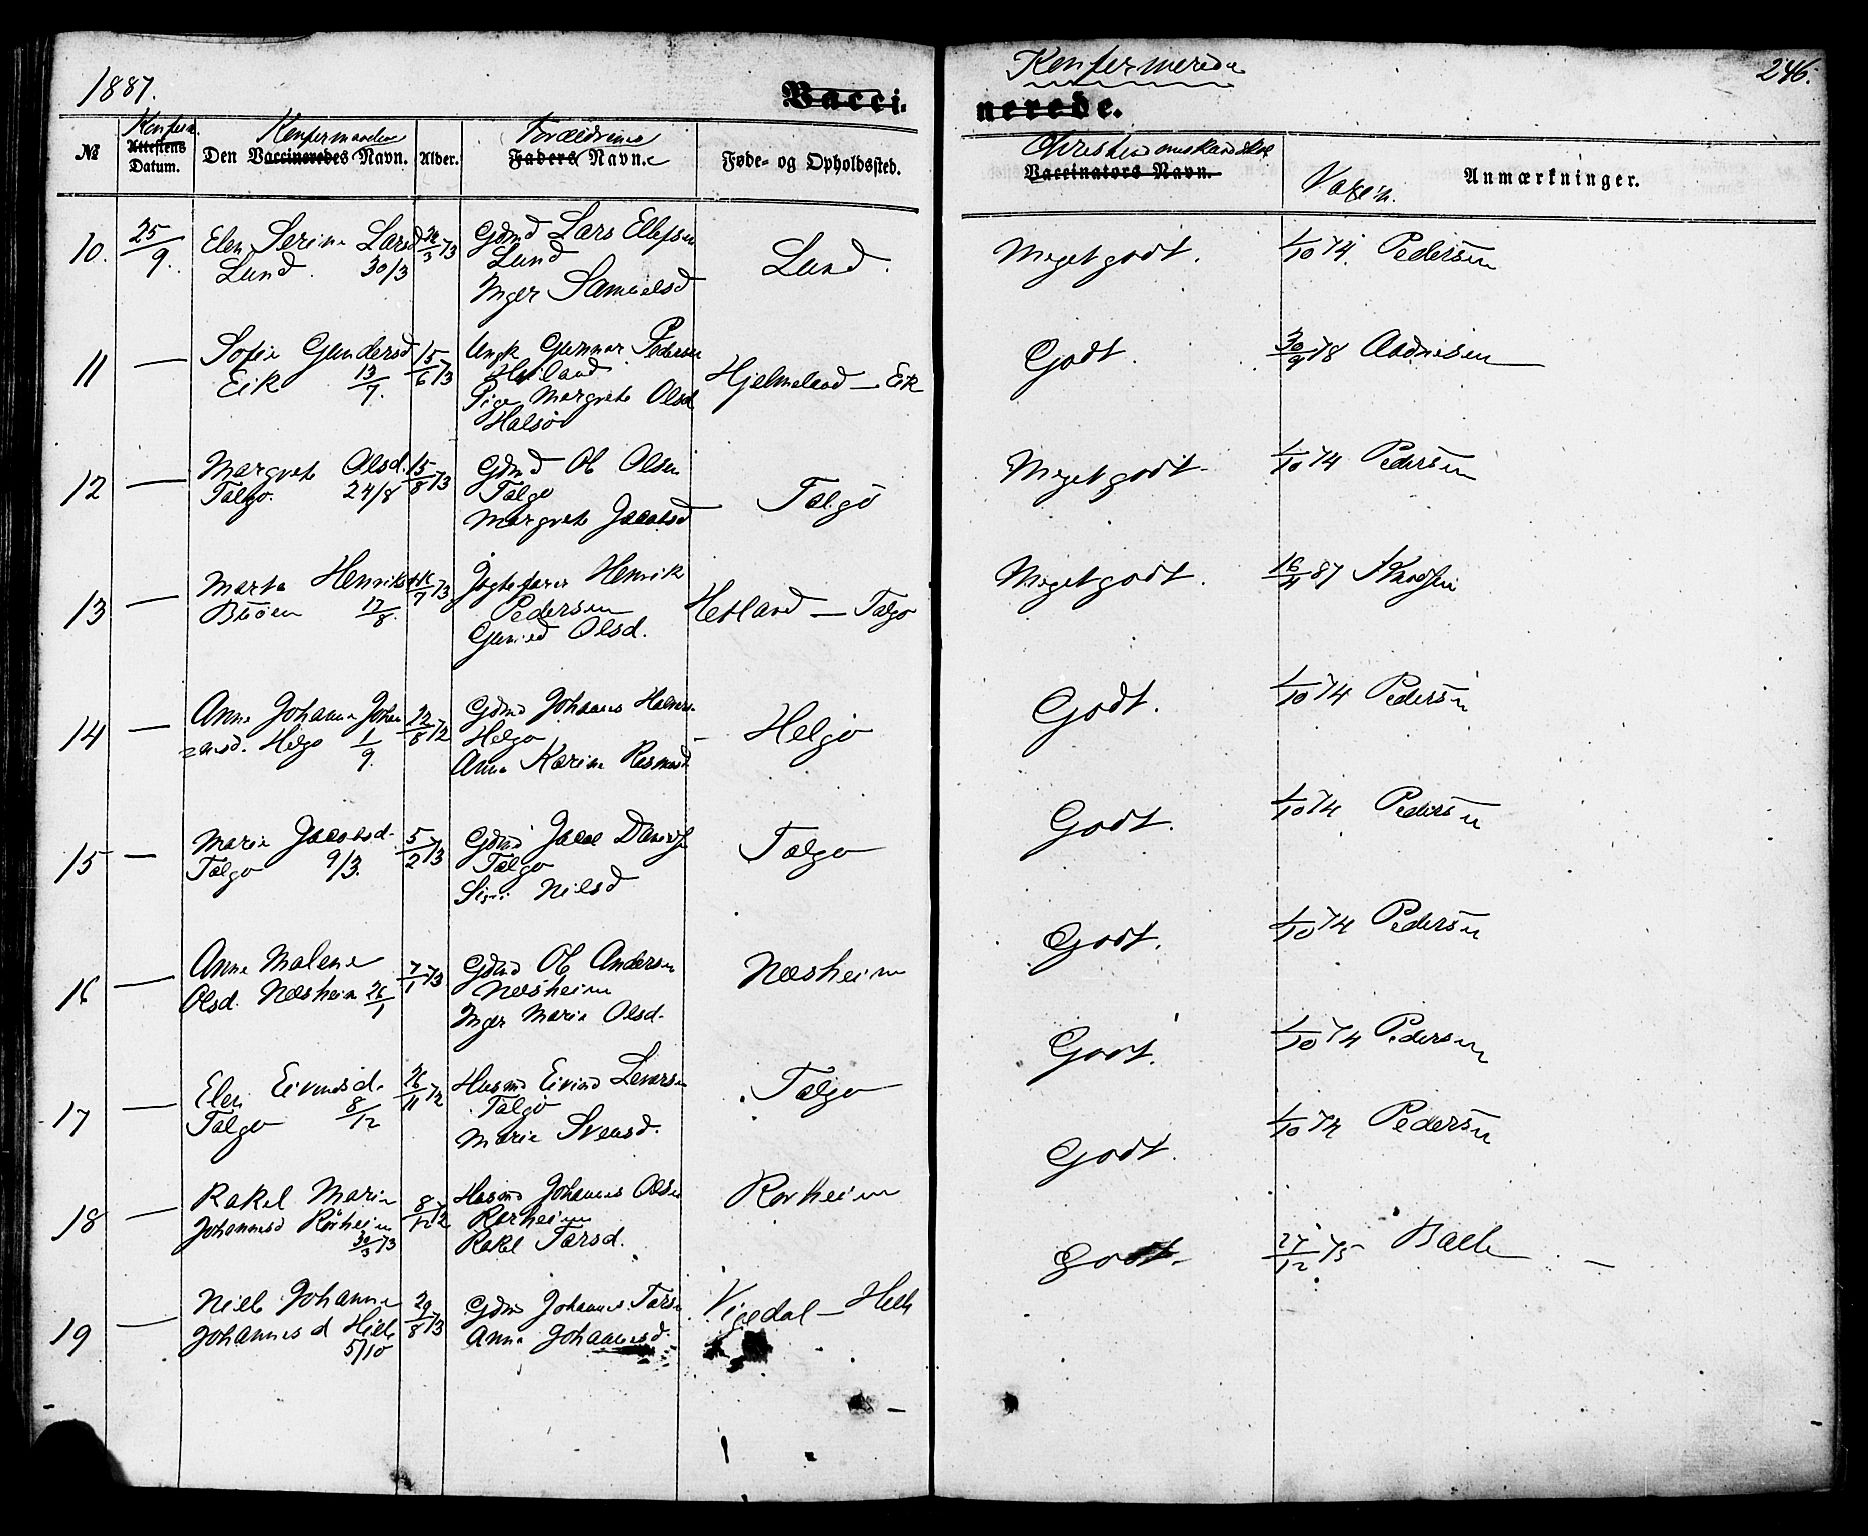 1887.
Konfirmerede
246.
Vacci.
nerede.
№ Konfirm. Attestens Datum. Konfirmandens Den Vaccineredes Navn. Alder. Forældrenes Faders Navne Føde- og Opholdssted. Christendomskundskab Vaccinators Navn. Vaxin. Anmærkninger.
10. 25/9. Elen Serine Larsd Lund. 30/3 26/3 73 Gdmd Lars Ellefsen Lund Inger Samuelsd Lund. Meget godt. 1/10 74. Pedersen
11 — Sofie Gundersd Eik 13/7. 15/6 73 Ungk Gunnar Pedersen Pige Margrete Olsd Halsø Hjelmeland — Eik Godt. 30/9 78 Aadnesen
12 — Margrete Olsd. Talgø. 24/8 15/8 73 Gdmd Ol Olsen Talgø Margrete Jacobsd Talgø Meget godt 1/10 74 Pedersen
13 — Marta Henriksd Buøen 17/8. 73 Jægtefører Henrik Pedersen Olsd. Hetland — Talgø Meget godt. 16/4 87 Knudsen
14 — Anne Johanne Johan nesd. Helgø 1/9. 12/8 72 Gdmd Johannes Helgø Anne Karine Rasmusd. Helgø Godt. 1/10 74 Pedersen
15 — Marie Jacobsd. Talgø 9/3. 5/2 73 Gdmd Jacob Talgø Siri Nilsd Talgø Godt. 1/10 74 Pedersen
16 — Anne Malene Olsd. Næsheim 26/1 7/1 73 Gdmd Ol Andersen Næsheim Inger Marie Olsd. Næsheim Godt. 1/10 74 Pedersen
17 — Elen Eivindsd. Talgø 8/12 26/11 72 Husmd Eivind Larsen Talgø Marie Svensd. Talgø Godt. 1/10 74 Pedersen
18 — Rakel Marie Johannesd Rørheim 30/3 73 8/12 72 Husmd Johannes Olsen Rørheim Rakel Tarsd. Rørheim Godt. 1/10 74 Pedersen
19 — Johanne Johannesd 5/10 29/8 73 Gdmd Johannes Anne Johannesd. Vigedal — Godt. 27/12 75